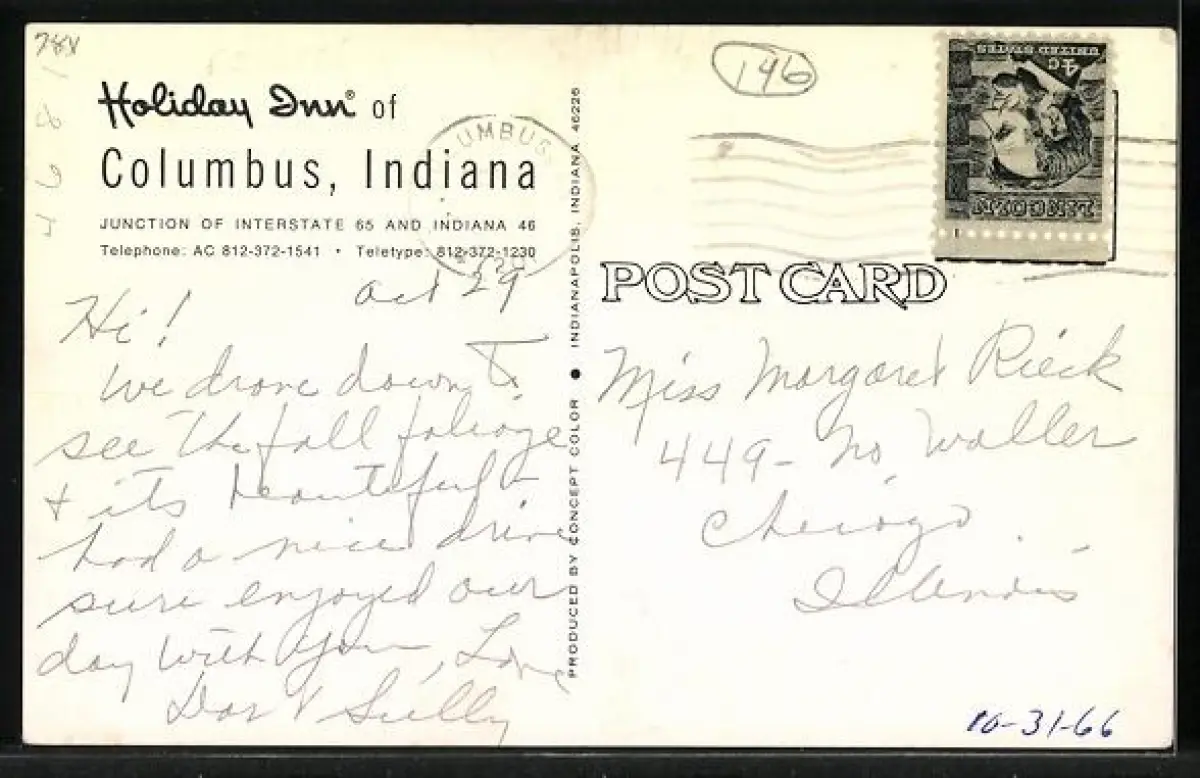 78X
146
4c
UNITED STATES
LINCOLN
Holiday Inn® of
Columbus, Indiana
JUNCTION OF INTERSTATE 65 AND INDIANA 46
Telephone: AC 812-372-1541 • Teletype: 812-372-1230
UMBUS
Oct 29
Hi!
We drove down to
see the fall foliage
+ its beautiful -
had a nice drive
sure enjoyed our
day with you, Love
Dor & Sully
PRODUCED BY CONCEPT COLOR ● INDIANAPOLIS, INDIANA 46226
POST CARD
Miss Margaret Rieck
449 - No. Waller
Chicago
Illinois
10-31-66